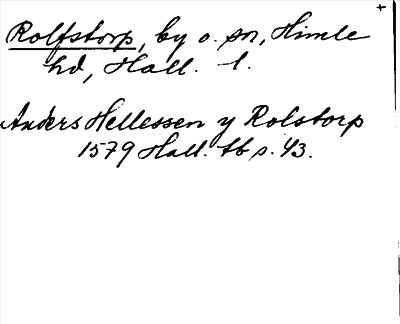 +
Rolfstorp, by o. sn, Himle
hd, Hall. l.
Anders Hellessen y Rolstorp
1579 Hall. tb s. 43.